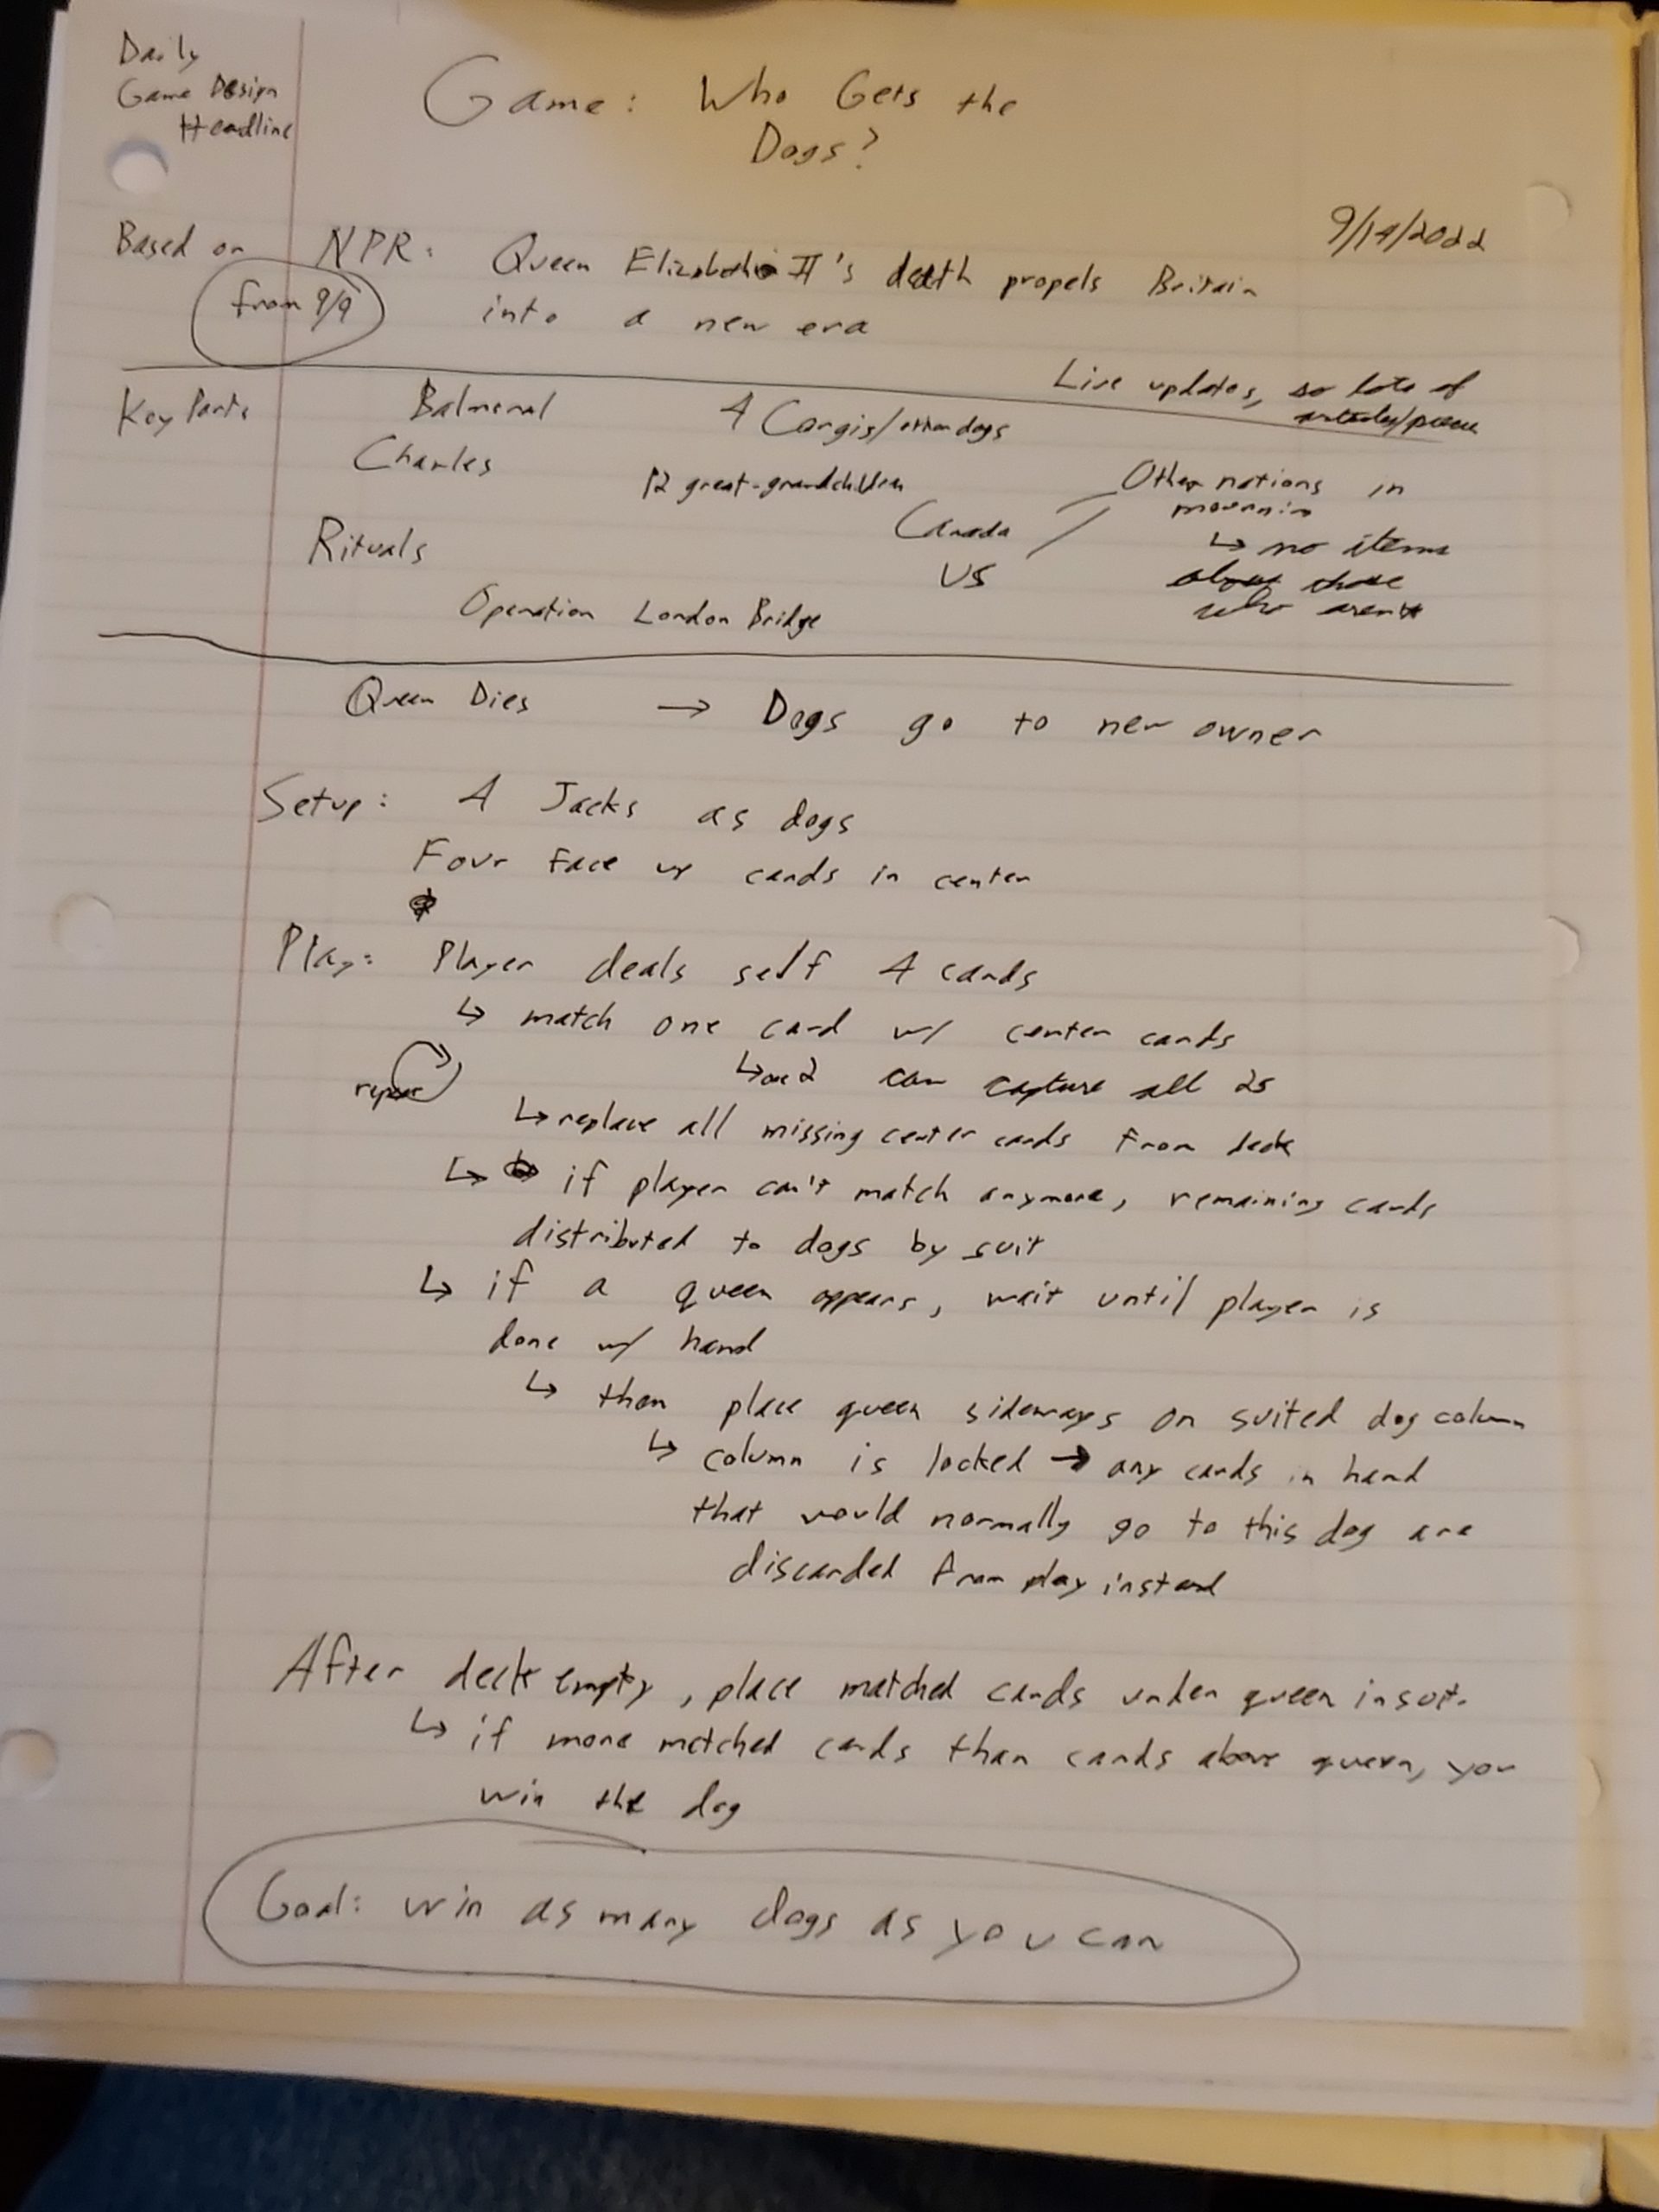 Daily
Game Design
Headline
Game: Who Gets the
Dogs?
9/14/2022
Based on NPR: Queen Elizabeth II's death propels Britain
from 9/9 into a new era
Live updates, so lots of
articles/pieces
Key Parts Balmoral 4 Corgis/other dogs
Charles 12 great-grandchildren Other nations in
mournin
Canada
Rituals ↳ no items
US about those
who aren't
Operation London Bridge
Queen Dies → Dogs go to new owner
Setup: 4 Jacks as dogs
Four face up cards in center
Play: Player deals self 4 cards
↳ match one card w/ center cards
repeat ↳ one 2 can capture all 2s
↳ replace all missing center cards from deck
↳ if player can't match anymore, remaining cards
distributed to dogs by suit
↳ if a queen appears, wait until player is
done w/ hand
↳ then place queen sideways on suited dog column
↳ column is locked → any cards in hand
that would normally go to this dog are
discarded from play instead
After deck empty, place matched cards under queen in suit.
↳ if more matched cards than cards above queen, you
win the dog
Goal: win as many dogs as you can